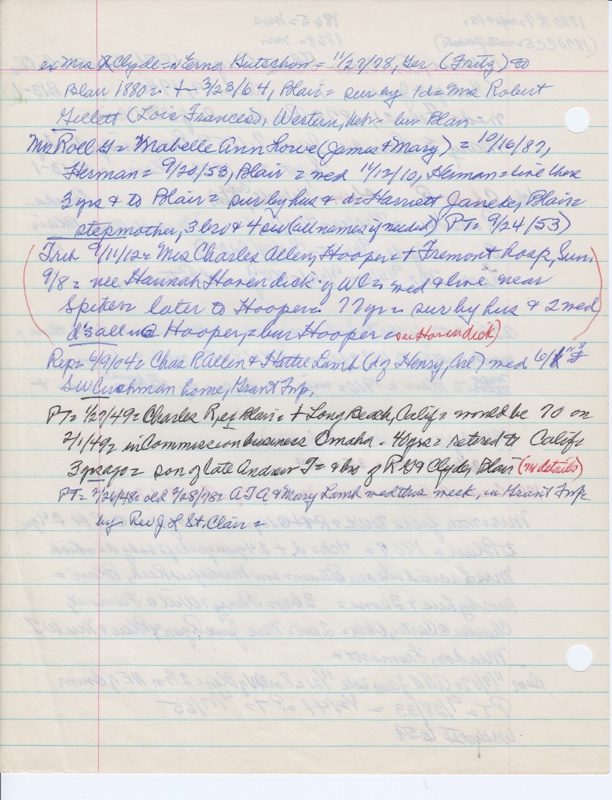 ex Mrs Clyde = Verna Hutchson = 11/27/78, Ger (Fritz) to
Blair 1880 = + 3/23/64, Blair = sur by 1d = Mrs Robert
Gillett (Lois Frances), Western, = bur Blair
Mrs Roll = Mabelle Ann Lowe (James & Mary) = 10/16/87,
Herman = 9/20/53, Blair = med 11/12/10, Herman = live there
3 yrs & to Blair = sur by hus & d = Harriett Jane de, Blair =
stepmother, 3 bro & 4 sis (all names if needed) PT = 9/24/53)
9/11/12 = Mrs Charles Allen, Hooper = + Fremont hosp, Sun.
9/8 = nee Hannah Havendick of WC = med & live near
Spiker = later to Hooper = 77 yr = sur by hus & 2 med
d's all @ Hooper = bur Hooper (su Havendick)
Rep = 6/9/04 = Chas R Allen & Hattie Lamb (d of Henry,) med 6/
SW Cushman home, Grant Twp.
PT = 1/27/49 = Charles R, ex Blair = + Long Beach, Calif = would be 70 on
2/1/49 = in Commission business Omaha 40 yrs = retired to Calif
3 yrs ago = son of late Andrew T = & bro of & Clyde, Blair (no details)
PT = 2/26/48 = old 2/28/78 = A T A & Mary Lamb med this week, in Grant Twp
by Rev J L St. Clair =